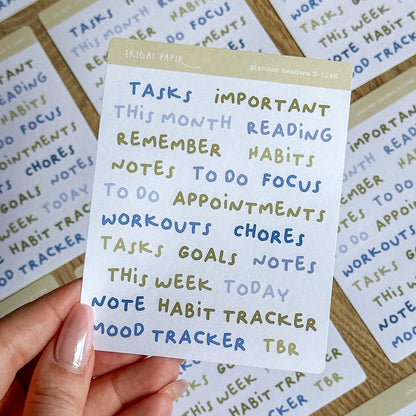 IKIGAI PAPIR planner headers S-1246
TASKS iMPORTANT
THiS MONTH READiNG
REMEMBER HABiTS
NOTES TO DO FOCUS
TO DO APPOiNTMENTS
WORKOUTS CHORES
TASKS GOALS NOTES
THiS WEEK TODAY
NOTE HABiT TRACKER
MOOD TRACKER TBR